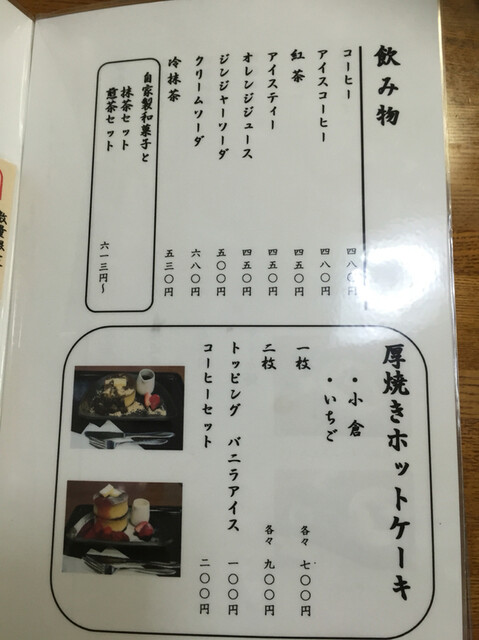 飲み物
コーヒー 四八〇円
アイスコーヒー 四八〇円
紅茶 四五〇円
アイスティー 四五〇円
オレンジジュース 四五〇円
ジンジャーソーダ 五〇〇円
クリームソーダ 六八〇円
冷抹茶 五三〇円
自家製和菓子と
抹茶セット
煎茶セット 六一三円〜
厚焼きホットケーキ
・小倉
・いちご
一枚 各々 七〇〇円
二枚 各々 九〇〇円
トッピング バニラアイス 一〇〇円
コーヒーセット 二〇〇円